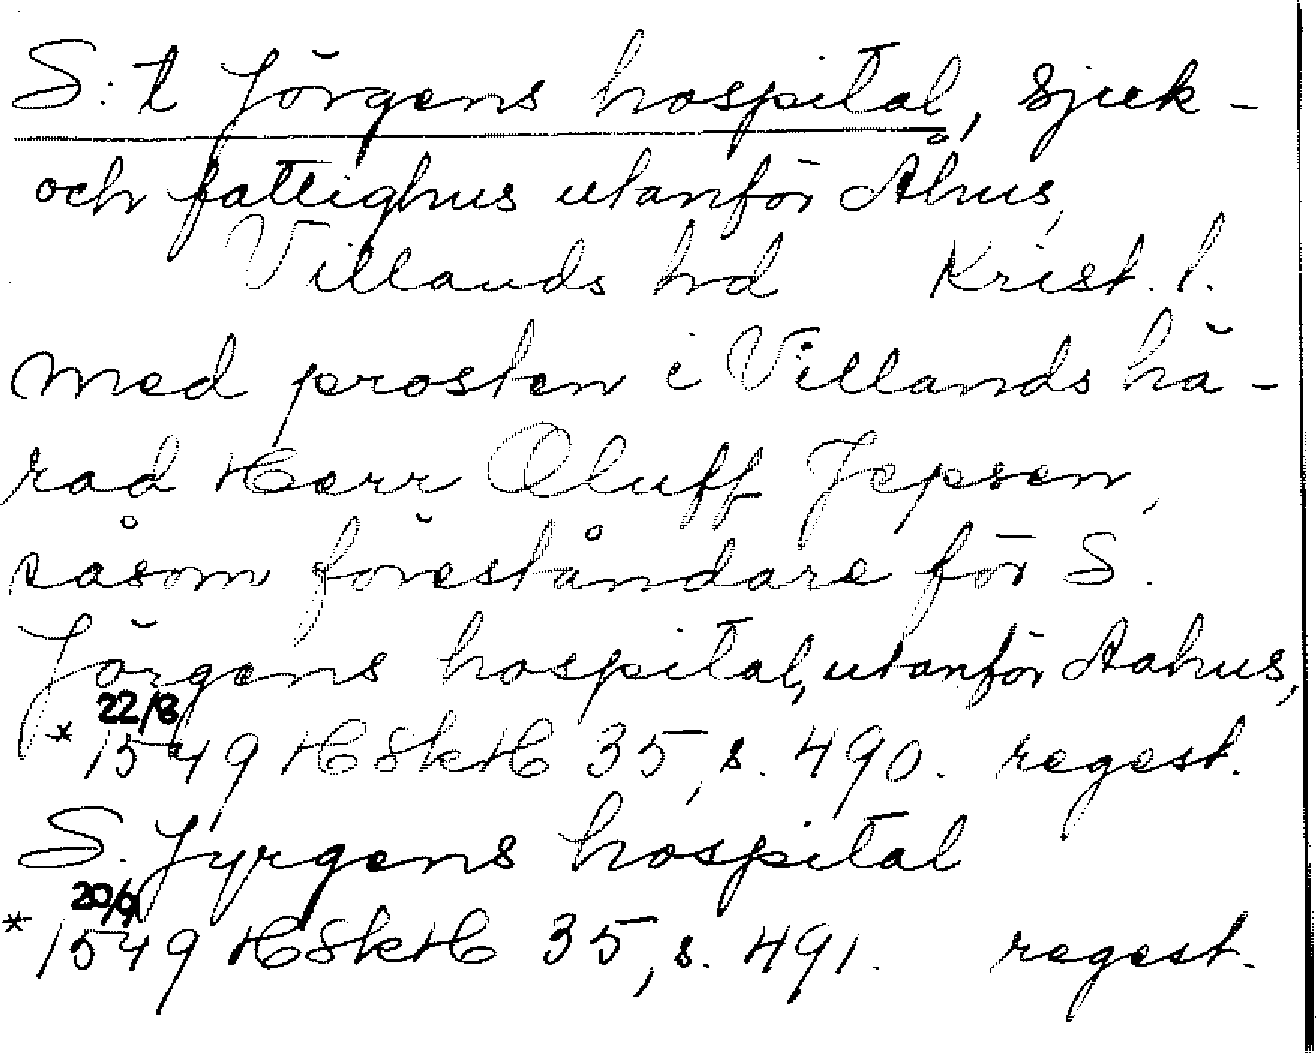 S:t Jörgens hospital, sjuk-
och fattighus utanför Åhus,
Villands hd Krist. l.
med prosten i Villands hä-
rad Herr Oluff Jepsen,
såsom föreståndare för S.
Jörgens hospital, utanför Aahus,
22/8
* 1549 HSkH 35, s. 490. regest.
S. Jyrgens hospital
20/9
* 1549 HSkH 35, s. 491. regest.